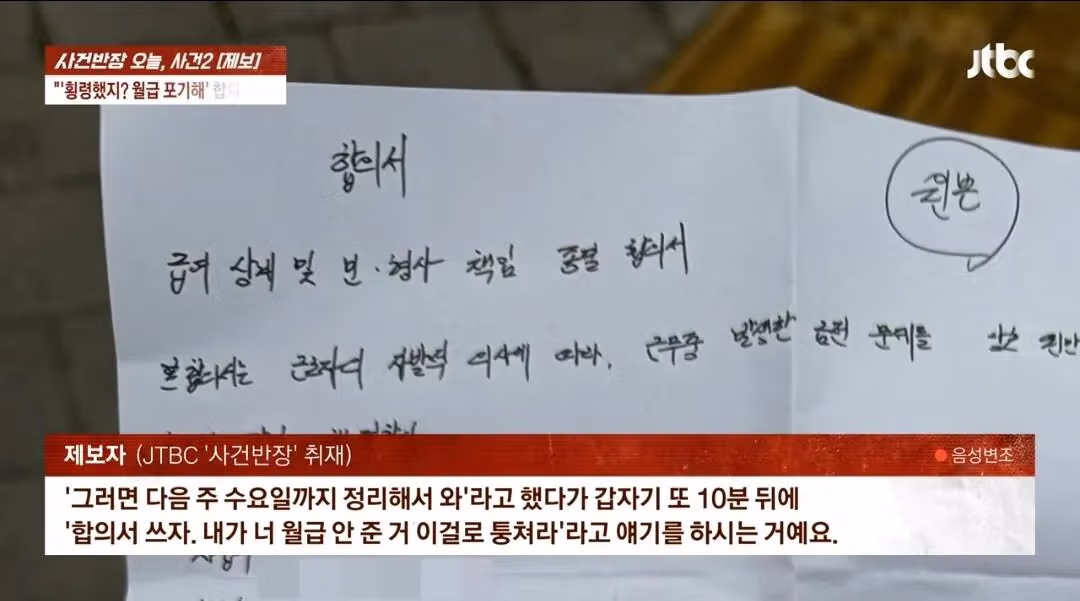 사건반장 오늘, 사건2 [제보]
"'횡령했지? 월급 포기해' 합의
jtbc
합의서
원본
급여 상계 및 민·형사 책임 종결 합의서
본 합의서는 근로자의 자발적 의사에 따라, 근무중 발생한 금전 문제를
제보자 (JTBC '사건반장' 취재)
음성변조
'그러면 다음 주 수요일까지 정리해서 와'라고 했다가 갑자기 또 10분 뒤에
'합의서 쓰자. 내가 너 월급 안 준 거 이걸로 퉁쳐라'라고 얘기를 하시는 거예요.